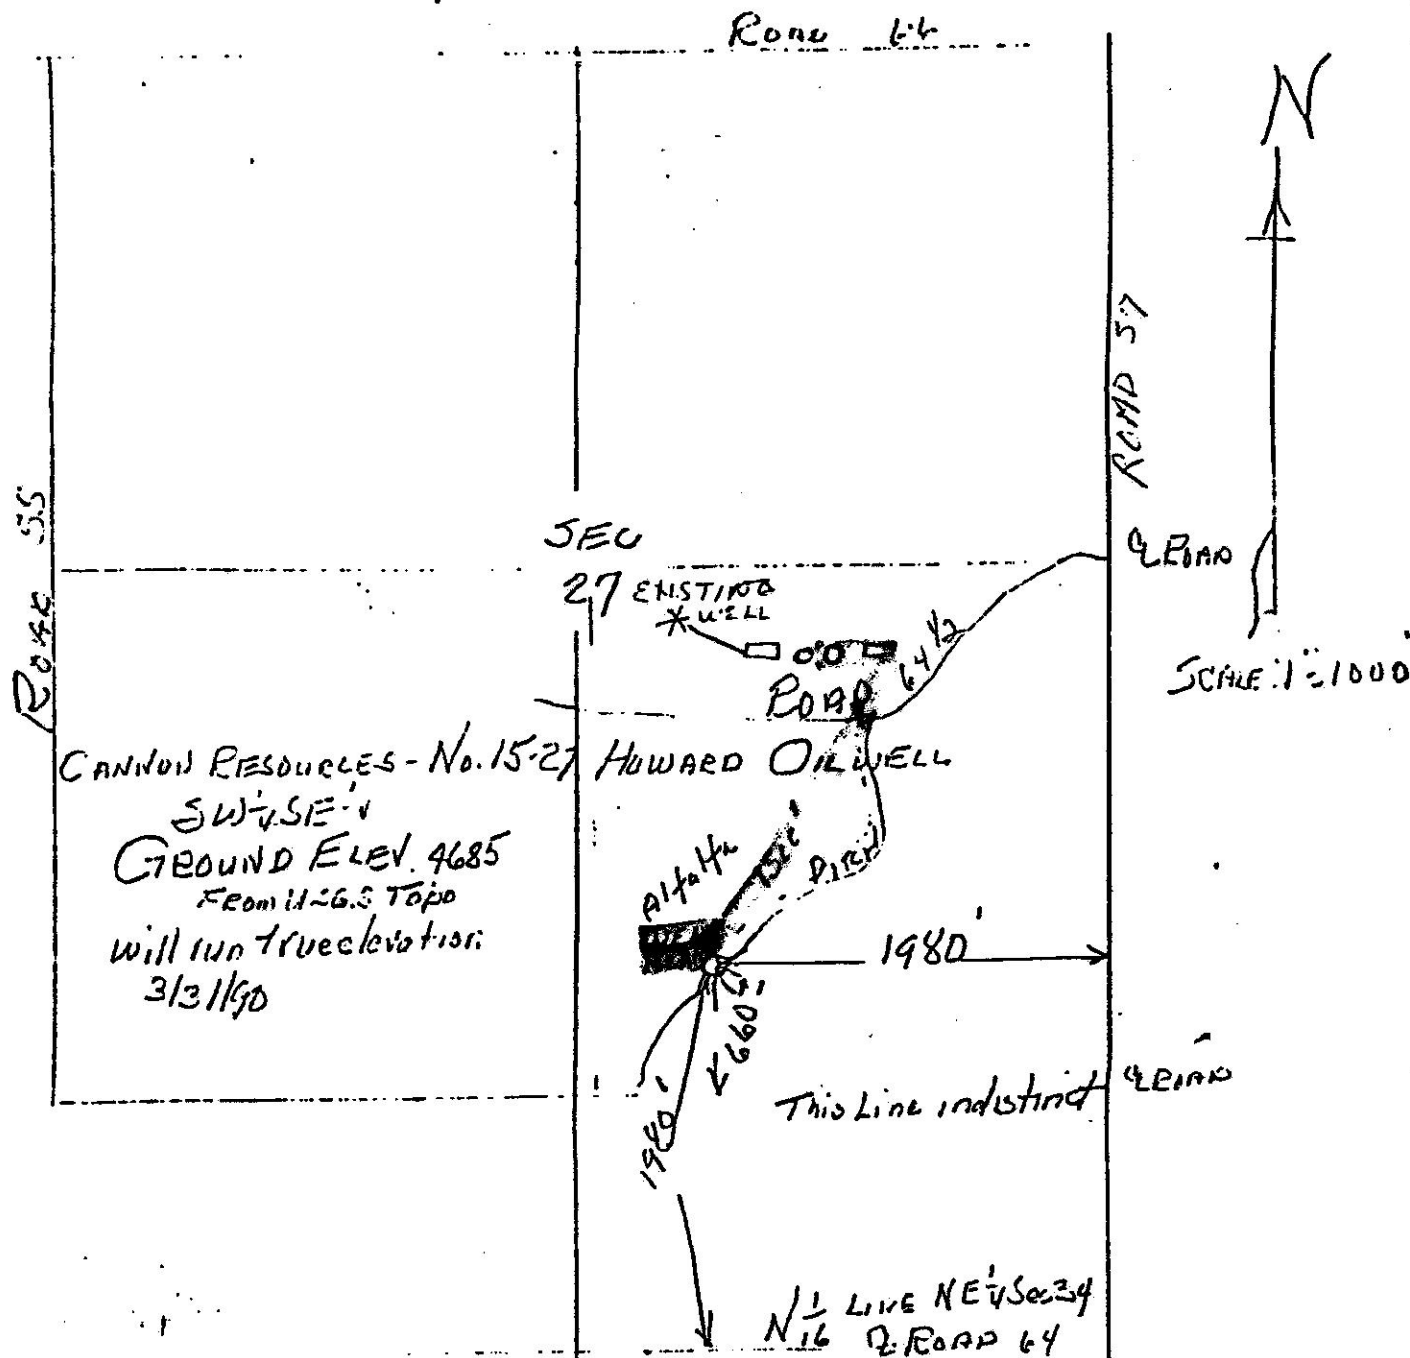 Road 66
N
ROAD 57
Road 55
SEC
27
EXISTING
WELL
℄ ROAD
64 1/2
ROAD
SCALE: 1"=1000'
CANNON RESOURCES - No. 15-27 HOWARD OIL WELL
SW¼SE¼
GROUND ELEV. 4685
From U.S.G.S Topo
will run true elevation
3/31/90
Alfalfa
DITCH
1980'
660'
℄ ROAD
This Line indistinct
1980'
N 1/16 LINE NE¼ Sec 34
℄ ROAD 64